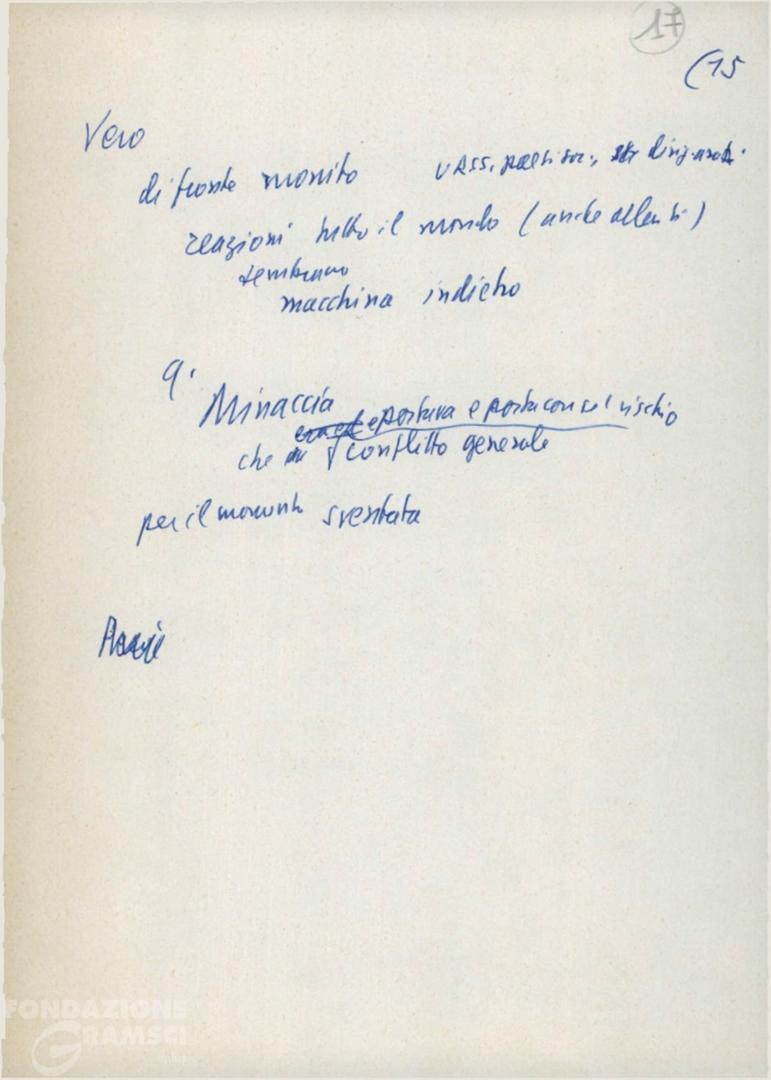 17
(15
Vero
di fronte monito URSS, paesi soc.,
reazioni tutto il mondo (anche alleati)
sembrano
macchina indietro
9.
Minaccia
e portava e porta con sé rischio
che conflitto generale
per il momento sventata
FONDAZIONE
GRAMSCI